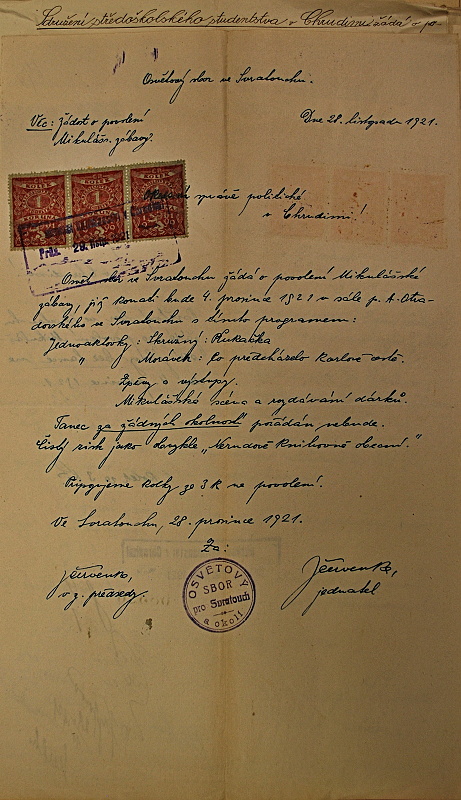 Sdružení středoškolského studentstva v Chrudimi žádá o po-
Osvětový sbor ve Svratouchu.
Věc: Žádost o povolení
Mikulášs. zábavy.
Dne 28. listopadu 1921.
KOLEK KOLEK KOLEK
1 1 1
KORUNA
28.
správě politické
v Chrudimi!
Osvět. sbor ve Svratouchu žádá o povolení Mikulášské
zábavy, jež konati bude 4. prosince 1921 v sále p. A. Otra-
dovského ve Svratouchu s tímto programem:
Jednoaktovky: Skružný: Kukačka
" Morávek: Co předcházelo Karlově cestě.
Zpěvy a výstupy.
Mikulášská scéna a rozdávání dárků.
Tanec za žádných okolností pořádán nebude.
Čistý zisk jako obvykle "Nerudově knihovně obecní."
Připojujeme kolky ze 3 K na povolení.
Ve Svratouchu, 28. prosince 1921.
Za:
JČervenka,
v z. předsedy.
OSVĚTOVÝ
SBOR
pro Svratouch
a okolí
JČervenka,
jednatel